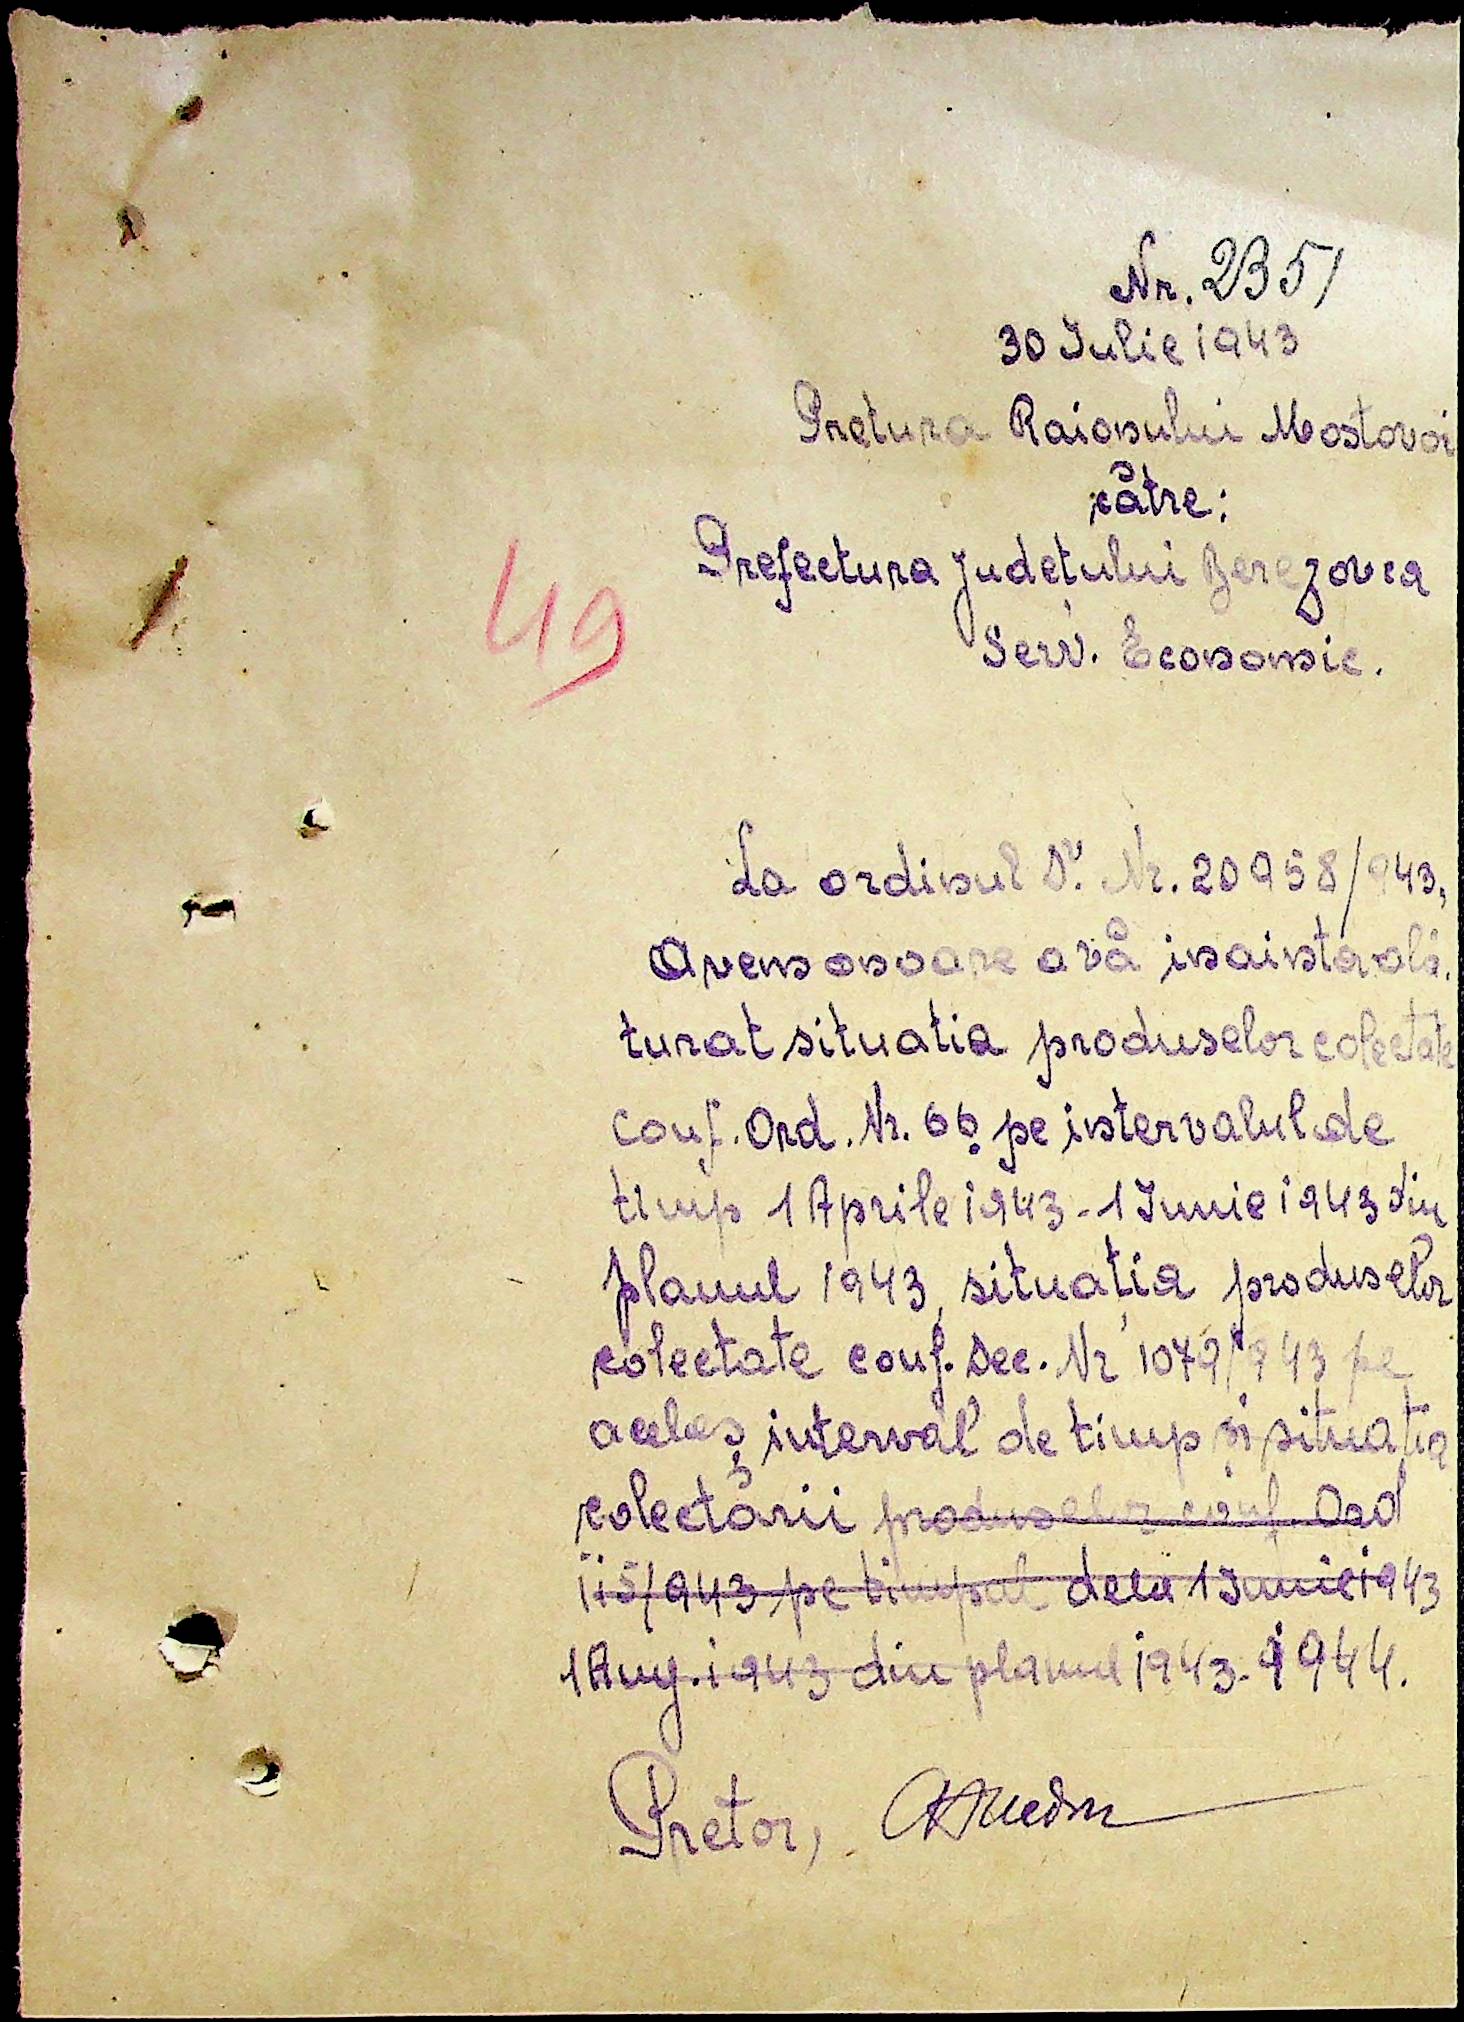 Nr. 2351
30 Iulie 1943
Pretura Raionului Mostovoi
către:
Prefectura Județului Berezovca
Serv. Economic.
49
La ordinul Dv. Nr. 20958/943,
Avem onoare a vă inainta ală.
turat situatia produselor colectate
conf. Ord. Nr. 66 pe intervalul de
timp 1 Aprile 1943 - 1 Iunie 1943 din
planul 1943, situația produselor
colectate conf. Dec. Nr 1079/943 pe
acelaș interval de timp și situația
colectării produselor conf. Ord
115/943 pe timpul dela 1 Iunie 1943
1 Aug. 1943 din planul 1943-1944.
Pretor,